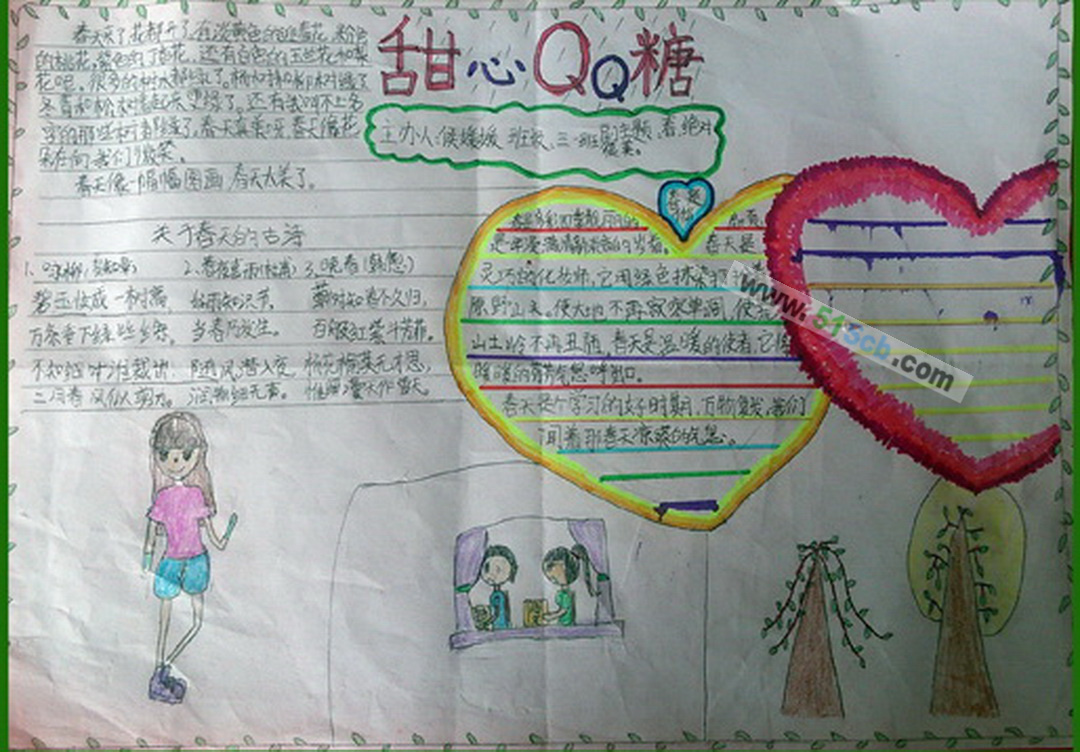 甜心QQ糖
主办人:侯媛媛 班级:三·一班 副主题:看,绝对最美。
春天来了花都开了,有淡黄色的迎春花,粉色
的桃花,紫色的丁香花,还有白色的玉兰花和梨
花呢。很多的树木都绿了。杨树和柳树绿了
冬青和松树看起来更绿了。还有我叫不上名
字的那些树木都绿了,春天真美呀,春天像花
朵在向我们微笑。
春天像一幅幅图画 春天太美了。
关于春天的古诗
1、咏柳(贺知章) 2、春夜喜雨(杜甫) 3、晚春(韩愈)
碧玉妆成一树高, 好雨知时节, 草树知春不久归,
万条垂下绿丝绦。 当春乃发生。 百般红紫斗芳菲。
不知细叶谁裁出, 随风潜入夜, 杨花榆荚无才思,
二月春风似剪刀。 润物细无声。 惟解漫天作雪飞。
春天是
灵巧的化妆师,它用绿色抹染
原野山来。使大地不再寂寞单调,使
山土岭不再丑陋。春天是温暖的使者,它
暖暖的 气息呼出口。
春天是个学习的好时期,万物复发,我们
闻着那春天凉爽的气息。
www.513cb.com